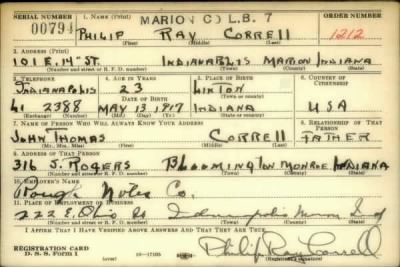 SERIAL NUMBER 1. NAME (Print) MARION CO L.B. 7 ORDER NUMBER
00794 PHILIP RAY CORRELL 1212
(First) (Middle) (Last)
2. ADDRESS (Print)
101 E. 14th ST. INDIANAPOLIS MARION INDIANA
(Number and street or R. F. D. number) (Town) (County) (State)
3. TELEPHONE 4. AGE IN YEARS 5. PLACE OF BIRTH 6. COUNTRY OF CITIZENSHIP
INDIANAPOLIS 23 LINTON
DATE OF BIRTH (Town or county)
LI 2388 MAY 13 1917 INDIANA USA
(Exchange) (Number) (Mo.) (Day) (Yr.) (State or country)
7. NAME OF PERSON WHO WILL ALWAYS KNOW YOUR ADDRESS 8. RELATIONSHIP OF THAT PERSON
JOHN THOMAS CORRELL FATHER
(Mr., Mrs., Miss) (First) (Middle) (Last)
9. ADDRESS OF THAT PERSON
316 S. ROGERS BLOOMINGTON MONROE INDIANA
(Number and street or R. F. D. number) (Town) (County) (State)
10. EMPLOYER'S NAME
Rough Notes Co.
11. PLACE OF EMPLOYMENT OR BUSINESS
222 E. Ohio St Indianapolis Marion Ind
(Number and street or R. F. D. number) (Town) (County) (State)
I AFFIRM THAT I HAVE VERIFIED ABOVE ANSWERS AND THAT THEY ARE TRUE.
REGISTRATION CARD
D. S. S. Form 1 (over) 16—17105 Philip Ray Correll